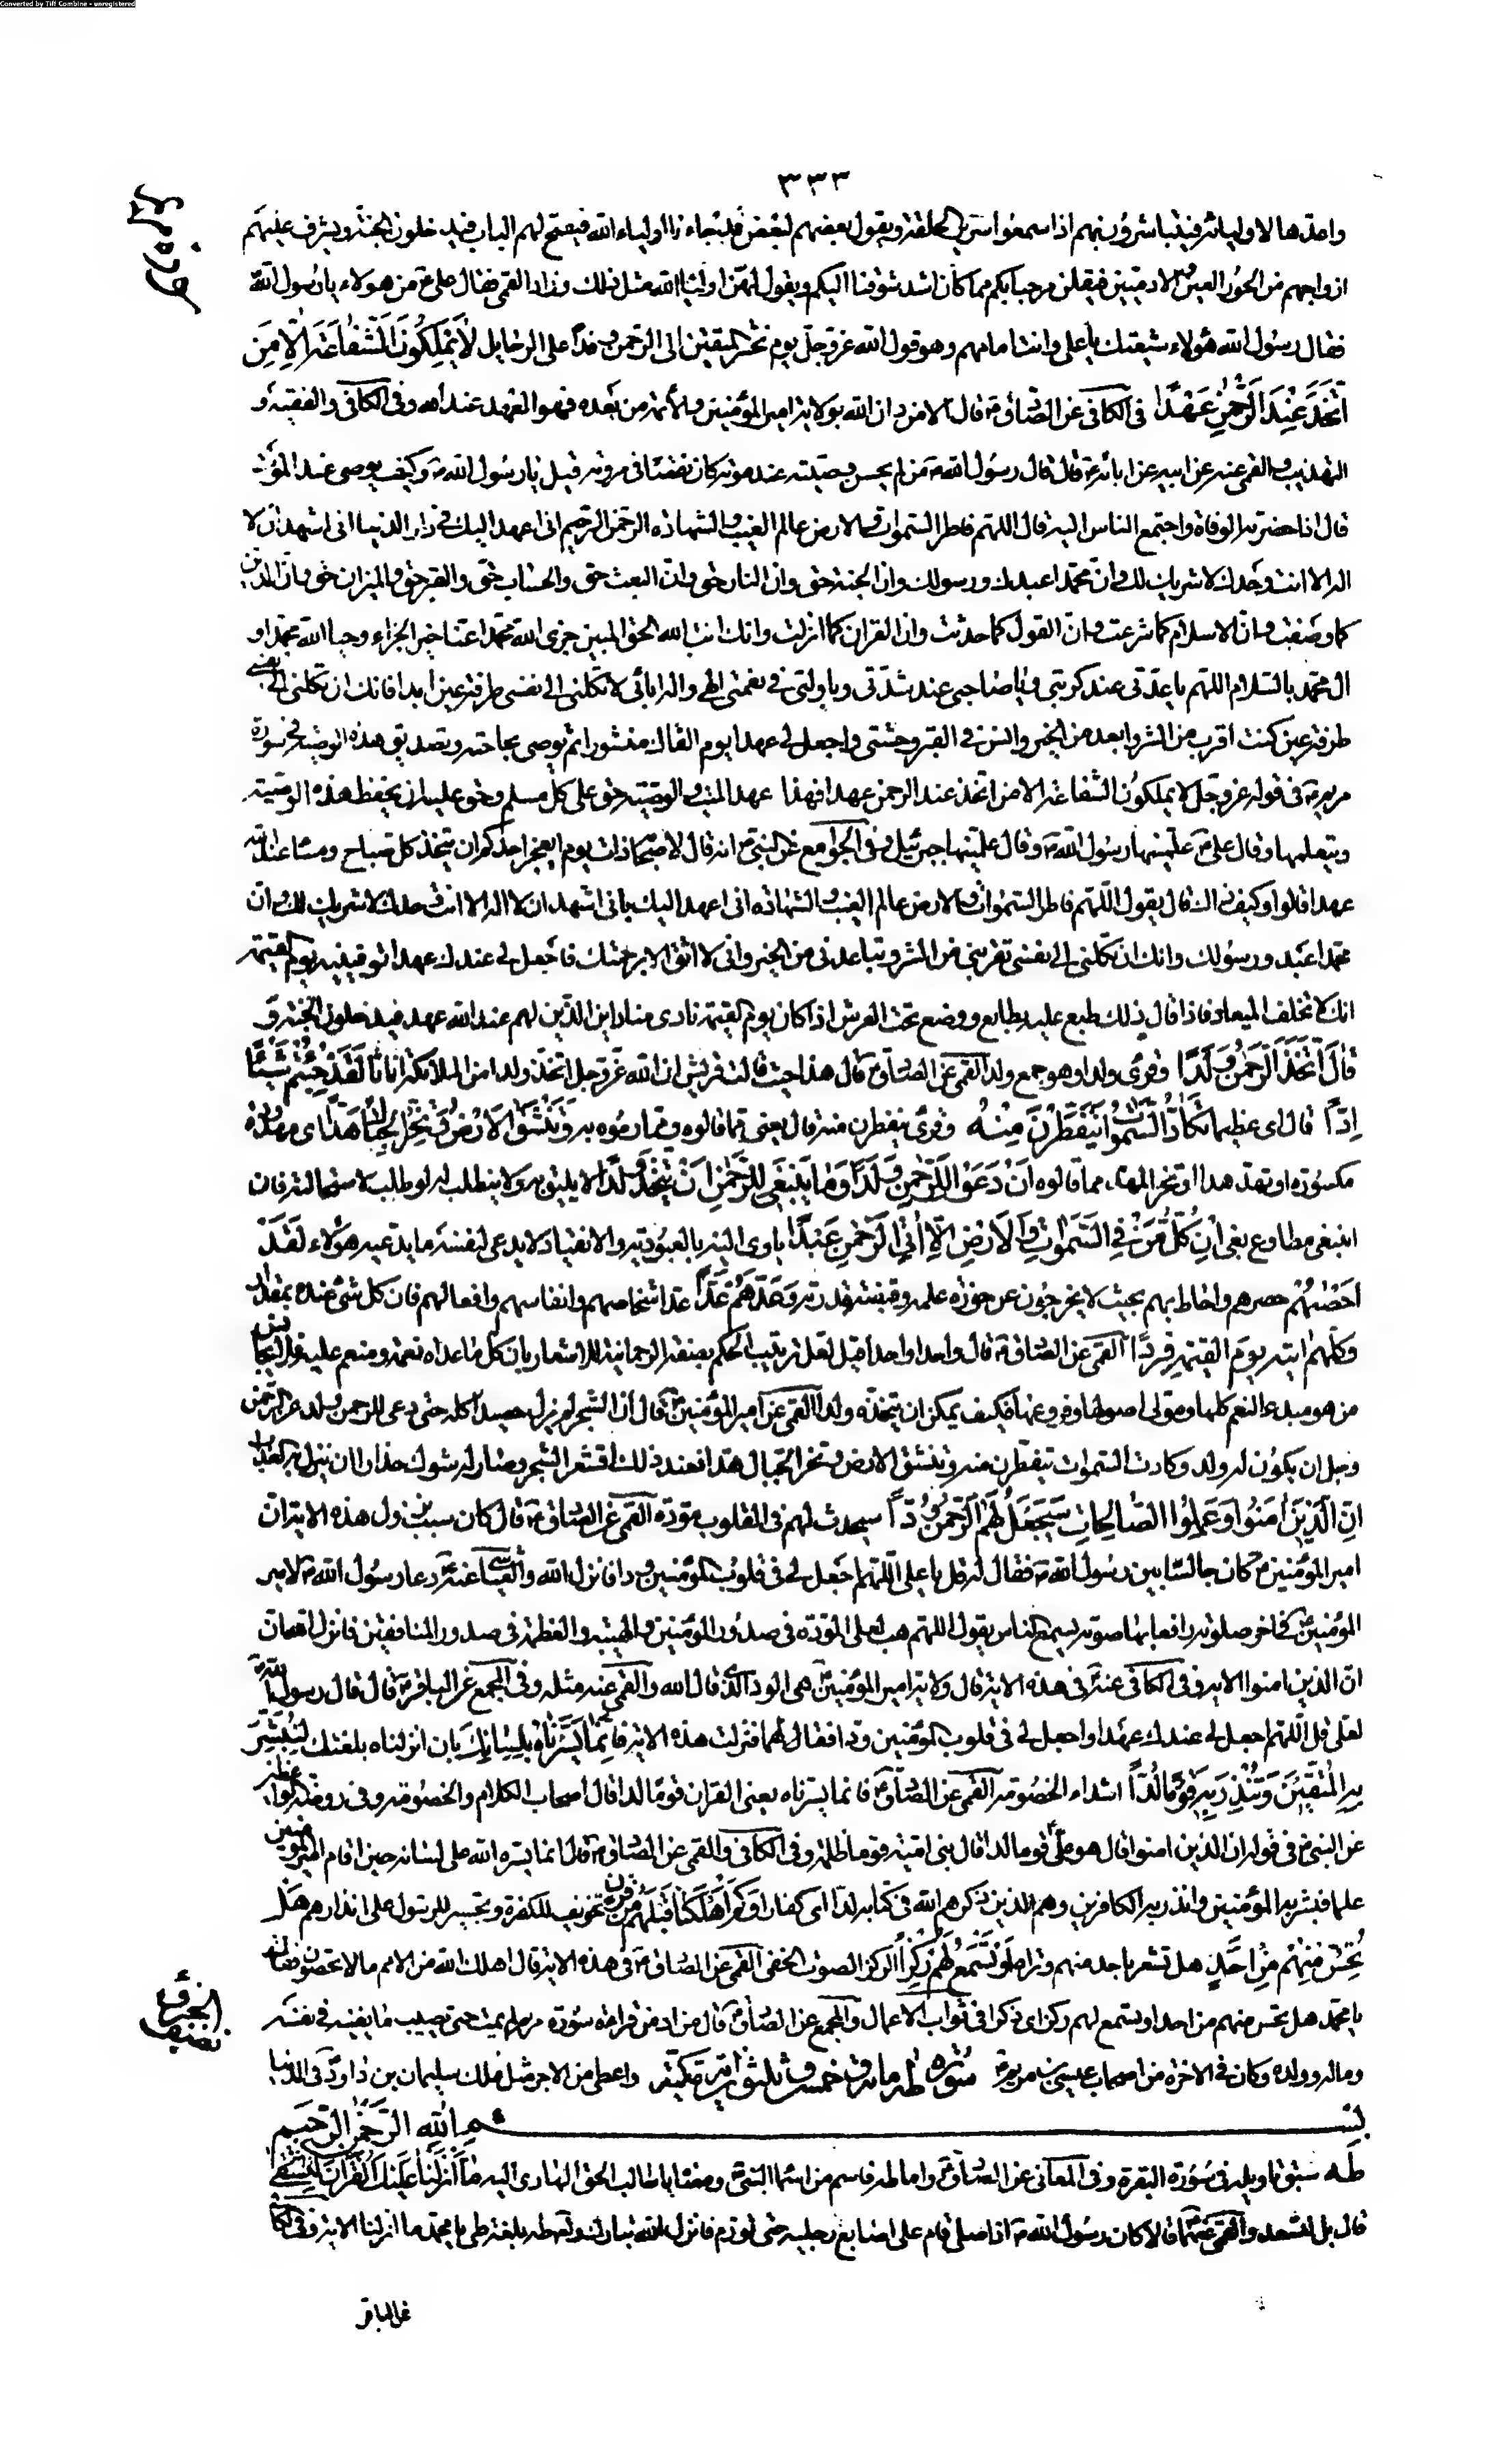 Converted by Tiff Combine - unregistered
٣٣٣
سورة مريم
واعدّها لاوليائه فيتباشرون بهم اذا سمعوا صرير الحلقة ويقول بعضهم لبعض قد جاءنا اولياء الله فيفتح لهم الباب فيدخلون الجنة ويشرف عليهم
ازواجهم من الحور العين والادميين فيقلن مرحبا بكم فما كان اشد شوقنا اليكم ويقول لهن اولياء الله مثل ذلك وزاد القمي فقال علي ع من هؤلاء يا رسول الله
فقال رسول الله هؤلاء شيعتك يا علي وانت امامهم وهو قول الله عز وجل يوم نحشر المتقين الى الرحمن وفدا على الرحايل لَا يَمْلِكُونَ الشَّفَاعَةَ إِلَّا مَنِ
اتَّخَذَ عِنْدَ الرَّحْمٰنِ عَهْدًا في الكافي عن الصادق ع قال الا من دان الله بولاية امير المؤمنين والائمة من بعده فهو العهد عند الله وفي الكافي والفقيه و
التهذيب والقمي عنه عن ابيه عن ابائه ع قال قال رسول الله ص من لم يحسن وصيته عند موته كان نقصا في مروته قيل يا رسول الله ص وكيف يوصي عند الموت
قال اذا حضرته الوفاة واجتمع الناس اليه قال اللهم فاطر السموات والارض عالم الغيب والشهادة الرحمن الرحيم اني اعهد اليك في دار الدنيا اني اشهد ان لا
اله الا انت وحدك لا شريك لك وان محمدا عبدك ورسولك وان الجنة حق وان النار حق وان البعث حق والحساب حق والقبر حق والميزان حق وان الدين
كما وصفت وان الاسلام كما شرعت وان القول كما حدثت وان القران كما انزلت وانك انت الله الحق المبين جزى الله محمدا عنا خير الجزاء وحيا الله محمدا و
ال محمد بالسلام اللهم يا عدتي عند كربتي ويا صاحبي عند شدتي ويا وليي في نعمتي الهي واله ابائي لا تكلني الى نفسي طرفة عين ابدا فانك ان تكلني الى نفسي
طرفة عين كنت اقرب من الشر وابعد من الخير وانس في القبر وحشتي واجعل لي عهدا يوم القاك منشورا ثم يوصي بحاجته وتصديق هذه الوصية في سورة
مريم في قوله عز وجل لا يملكون الشفاعة الا من اتخذ عند الرحمن عهدا فهذا عهد الميت والوصية حق على كل مسلم وحق عليه ان يحفظ هذه الوصية
ويتعلمها وقال علي ع علمنيها رسول الله ص وقال علمنيها جبرئيل وفي الجوامع عن النبي ص انه قال لاصحابه ذات يوم ايعجز احدكم ان يتخذ كل صباح ومساء عند الله
عهدا قالوا وكيف ذاك قال يقول اللهم فاطر السموات والارض عالم الغيب والشهادة اني اعهد اليك باني اشهد ان لا اله الا انت وحدك لا شريك لك وان
محمدا عبدك ورسولك وانك ان تكلني الى نفسي تقربني من الشر وتباعدني من الخير واني لا اثق الا برحمتك فاجعل لي عندك عهدا توفينيه يوم القيمة
انك لا تخلف الميعاد فاذا قال ذلك طبع عليه بطابع ووضع تحت العرش اذا كان يوم القيمة نادى مناد اين الذين لهم عند الله عهد فيدخلون الجنة وَ
قَالُوا اتَّخَذَ الرَّحْمٰنُ وَلَدًا وقرئ ولدا وهو جمع ولد القمي عن الصادق ع قال هذا حيث قالت قريش ان الله عز وجل اتخذ ولدا من الملائكة اناثا لَقَدْ جِئْتُمْ شَيْئًا
اِدًّا قال اي عظيما تَكَادُ السَّمٰوَاتُ يَتَفَطَّرْنَ مِنْهُ وقرئ ينفطرن منه قال يعني مما قالوه ومما رموه به وَتَنْشَقُّ الْاَرْضُ وَتَخِرُّ الْجِبَالُ هَدًّا اي مهدودة
مكسورة او تهد هدا او تخر الهدّ مما قالوه اَنْ دَعَوْا لِلرَّحْمٰنِ وَلَدًا وَمَا يَنْبَغِي لِلرَّحْمٰنِ اَنْ يَتَّخِذَ وَلَدًا لا يليق به ولا ينطلب له لو طلب لاستحالته فان
انبغى مطاوع بغى اِنْ كُلُّ مَنْ فِي السَّمٰوَاتِ وَالْاَرْضِ اِلَّا اٰتِي الرَّحْمٰنِ عَبْدًا ياوي اليه بالعبودية والانقياد لا يدعى لنفسه ما يدعيه هؤلاء لَقَدْ
اَحْصٰيهُمْ حصرهم واحاط بهم بحيث لا يخرجون عن حوزة علمه وقبضة قدرته وَعَدَّهُمْ عَدًّا عد اشخاصهم وانفاسهم وافعالهم فان كل شئ عنده بمقدار
وَكُلُّهُمْ اٰتِيهِ يَوْمَ الْقِيٰمَةِ فَرْدًا القمي عن الصادق ع قال واحدا واحدا قيل لعل ترتيب الحكم بصفة الرحمانية للاشعار بان كل ما عداه نعمة ومنعم عليه فلا يجانس
من هو مبدء النعم كلها ومولى اصولها وفروعها فكيف يمكن ان يتخذه ولدا القمي عن امير المؤمنين ع قال ان الشجر لم يزل حصيدا كله حتى دعي للرحمن ولد عز الرحمن
وجل ان يكون له ولد وكادت السموات يتفطرن منه وتنشق الارض وتخر الجبال هدا فعند ذلك اقشعر الشجر وصار له شوك حذار ان ينزل به العذاب
اِنَّ الَّذِينَ اٰمَنُوا وَعَمِلُوا الصَّالِحَاتِ سَيَجْعَلُ لَهُمُ الرَّحْمٰنُ وُدًّا سيحدث لهم في القلوب مودة القمي عن الصادق ع قال كان سبب نزول هذه الاية ان
امير المؤمنين ع كان جالسا بين رسول الله ص فقال له قل يا علي اللهم اجعل لي في قلوب المؤمنين ودا فانزل الله والعياشي عنه ع دعا رسول الله ص لامير
المؤمنين ع في اخر صلوته رافعا بها صوته يسمع الناس يقول اللهم هب لعلي المودة في صدور المؤمنين والهيبة والعظمة في صدور المنافقين فانزل الله ان
ان الذين امنوا الاية وفي الكافي عنه ع في هذه الاية قال ولاية امير المؤمنين ع هي الود الذي قال الله والقمي عنه مثله وفي المجمع عن الباقر ع قال قال رسول الله ص
لعلي قل اللهم اجعل لي عندك عهدا واجعل لي في قلوب المؤمنين ودا فقالهما فنزلت هذه الاية فَاِنَّمَا يَسَّرْنَاهُ بِلِسَانِكَ بان انزلناه بلغتك لِتُبَشِّرَ
بِهِ الْمُتَّقِينَ وَتُنْذِرَ بِهِ قَوْمًا لُدًّا اشداء الخصومة القمي عن الصادق ع فانما يسرناه يعني القران قوما لدا قال اصحاب الكلام والخصومة وفي روضة الواعظين
عن النبي ص في قوله ان الذين امنوا قال هو علي ع قوما لدا قال بني امية قوما ظلمة وفي الكافي والقمي عن الصادق ع قال انما يسره الله على لسانه حين اقام امير المؤمنين
علما فبشر به المؤمنين وانذر به الكافرين وهم الذين ذكرهم الله في كتابه لدا اي كفارا وَكَمْ اَهْلَكْنَا قَبْلَهُمْ مِنْ قَرْنٍ تخويف للكفرة وتجسير للرسول على انذارهم هَلْ
تُحِسُّ مِنْهُمْ مِنْ اَحَدٍ هل تشعر باحد منهم وتراه اَوْ تَسْمَعُ لَهُمْ رِكْزًا الركز الصوت الخفي القمي عن الصادق ع في هذه الاية قال اهلك الله من الامم ما لا تحصون فقال
يا محمد هل تحس منهم من احد او تسمع لهم ركزا اي ذكرا في ثواب الاعمال والمجمع عن الصادق ع قال من ادمن قراءة سورة مريم لم يمت حتى يصيب ما يغنيه في نفسه
وماله وولده وكان في الاخرة من اصحاب عيسى بن مريم ع سورة طه مائة وخمس وثلثون اية مكية واعطي من الاجر مثل ملك سليمان بن داود في الدنيا
بسم الله الرحمن الرحيم
طه سبق تاويله في سورة البقرة وفي المعاني عن الصادق ع واما طه فاسم من اسماء النبي ص ومعناه يا طالب الحق الهادي اليه مَا اَنْزَلْنَا عَلَيْكَ الْقُرْاٰنَ لِتَشْقٰى
قال بل لتسعد والقمي عنهما ع قالا كان رسول الله ص اذا صلى قام على اصابع رجليه حتى تورم فانزل الله تبارك وتع طه بلغة طي يا محمد ما انزلنا الاية وفي الكافي
الجزؤ
نصف
عن الباقر